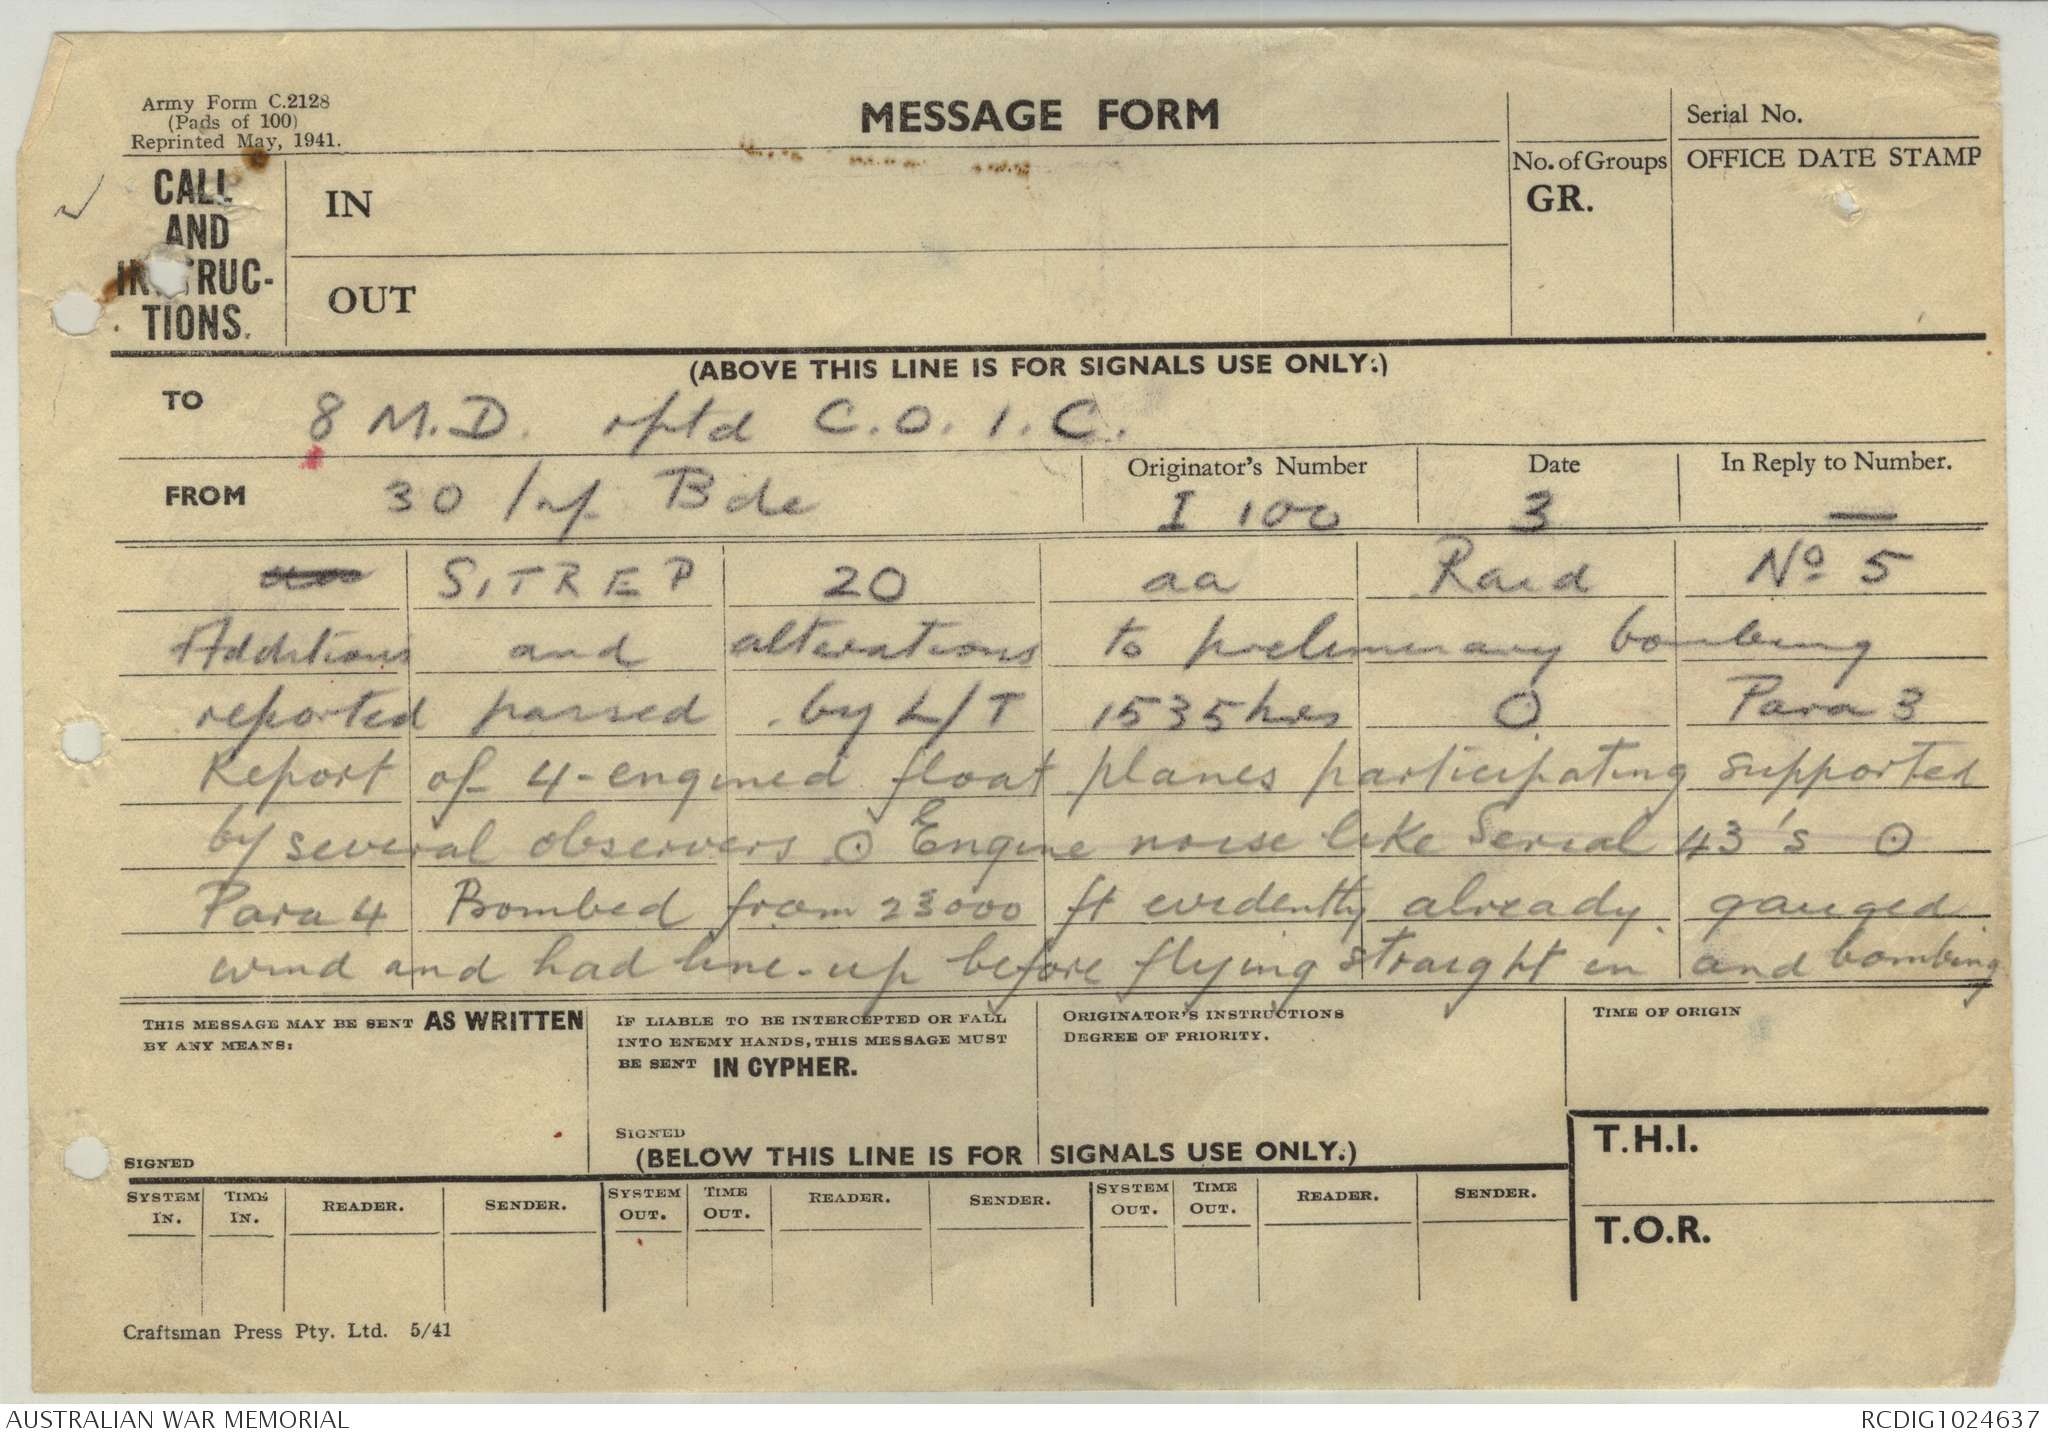 Army Form C.2128
(Pads of 100)
Reprinted May, 1941.
MESSAGE FORM
Serial No.
CALL
AND
INSTRUC-
TIONS.
IN
OUT
No. of Groups
GR.
OFFICE DATE STAMP
(ABOVE THIS LINE IS FOR SIGNALS USE ONLY.)
TO 8 M.D. rptd C.O.I.C.
FROM 30 Inf Bde
Originator's Number I 100
Date 3
In Reply to Number. —
SITREP 20 aa Raid No 5
Additions and alterations to preliminary bombing
reported passed by L/T 1535hrs O Para 3
Report of 4-engined float planes participating supported
by several observers ⊙ Engine noise like Serial 43's ⊙
Para 4 Bombed from 23000 ft evidently already gauged
wind and had line-up before flying straight in and bombing
THIS MESSAGE MAY BE SENT AS WRITTEN
BY ANY MEANS:
SIGNED
IF LIABLE TO BE INTERCEPTED OR FALL
INTO ENEMY HANDS, THIS MESSAGE MUST
BE SENT IN CYPHER.
SIGNED
ORIGINATOR'S INSTRUCTIONS
DEGREE OF PRIORITY.
TIME OF ORIGIN
(BELOW THIS LINE IS FOR SIGNALS USE ONLY.)
T.H.I.
T.O.R.
SYSTEM IN. TIME IN. READER. SENDER. SYSTEM OUT. TIME OUT. READER. SENDER. SYSTEM OUT. TIME OUT. READER. SENDER.
Craftsman Press Pty. Ltd. 5/41
AUSTRALIAN WAR MEMORIAL
RCDIG1024637